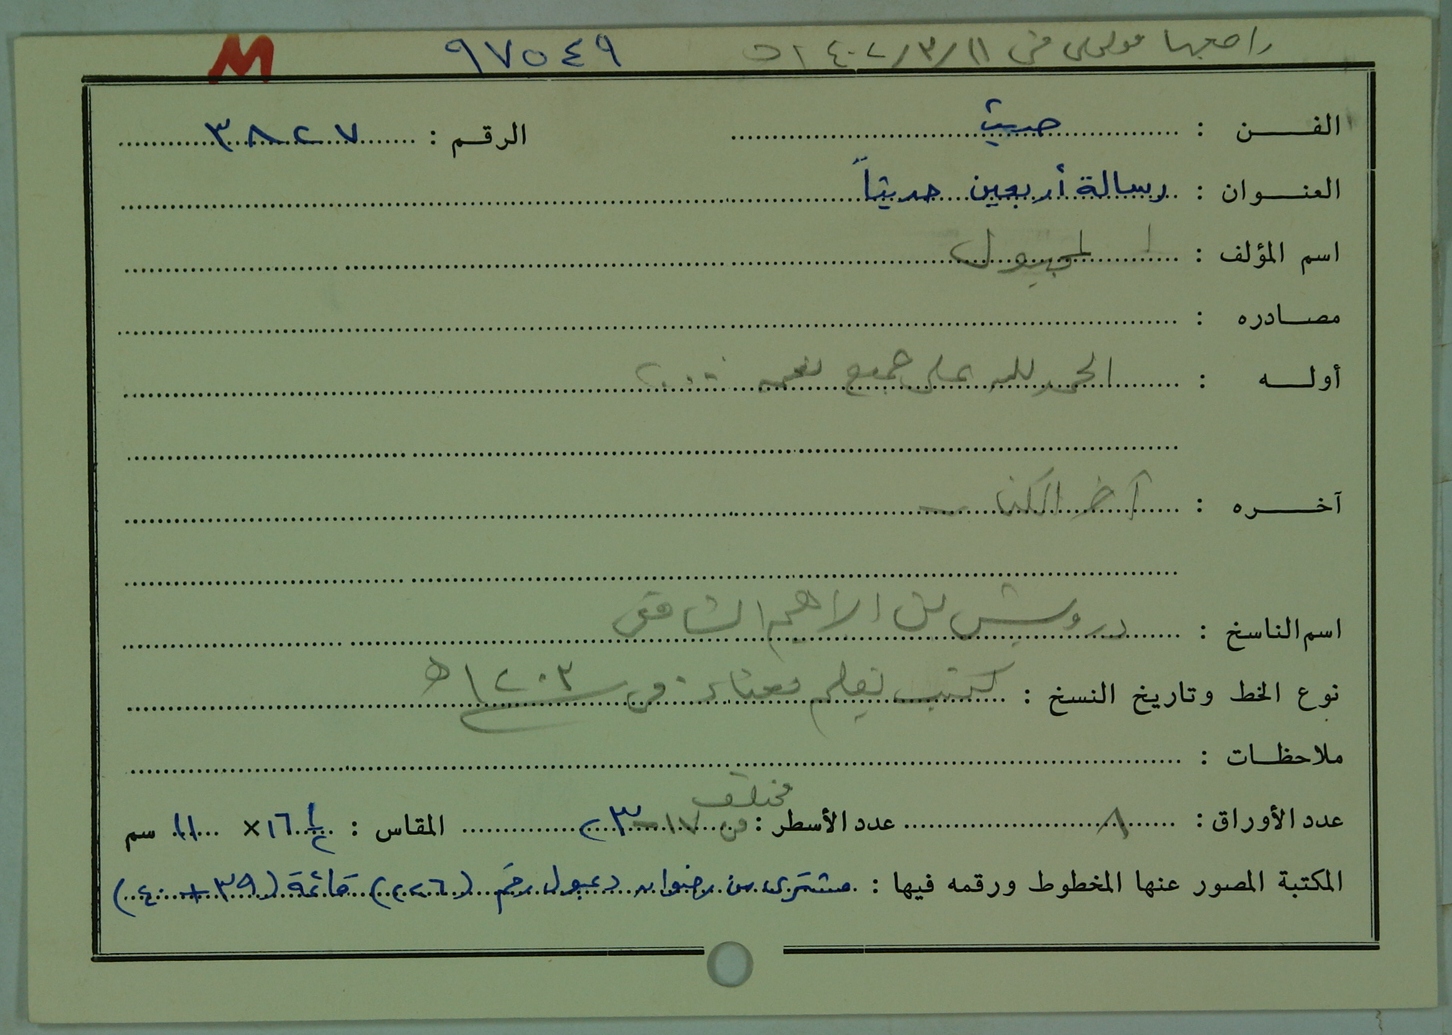 راجعها مولوي في ١١/٣/١٤٠٢ھ ٩٧٥٤٩ M
الفن : حديث الرقم : ٣٨٢٧
العنوان : رسالة أربعين حديثاً
اسم المؤلف : لمجهول
مصادره :
أوله : الحمد لله على جميع نعمه ...
آخره : آخر الكتاب
اسم الناسخ : درويش بن ابراهيم الشافعي
نوع الخط وتاريخ النسخ : كتب بقلم معتاد في ١٢٠٣ ھ
ملاحظات :
عدد الأوراق : ٨ عدد الأسطر : مختلف من ١٧ - ٢٣ المقاس : ١٦ ١/٢ × ١١ سم
المكتبة المصور عنها المخطوط ورقمه فيها : مشترى من رضوان دعبول رقم (٢٢٢٦) قائمة (٣٩ + ٤٠)